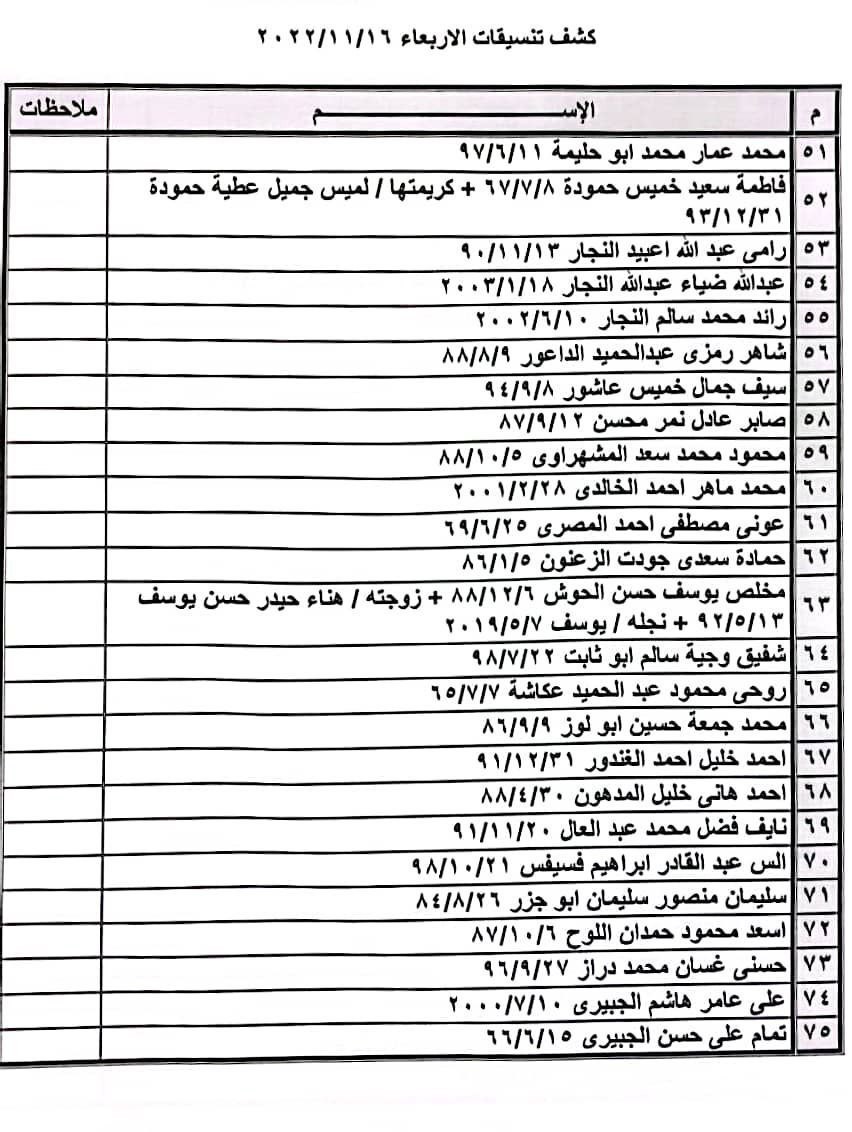 كشف تنسيقات الاربعاء ٢٠٢٢/١١/١٦
م الإســـــــم ملاحظات
٥١ محمد عمار محمد ابو حليمة ٩٧/٦/١١
٥٢ فاطمة سعيد خميس حمودة ٦٧/٧/٨ + كريمتها / لميس جميل عطية حمودة
٩٣/١٢/٣١
٥٣ رامى عبد الله اعبيد النجار ٩٠/١١/١٣
٥٤ عبدالله ضياء عبدالله النجار ٢٠٠٣/١/١٨
٥٥ رائد محمد سالم النجار ٢٠٠٢/٦/١٠
٥٦ شاهر رمزى عبدالحميد الداعور ٨٨/٨/٩
٥٧ سيف جمال خميس عاشور ٩٤/٩/٨
٥٨ صابر عادل نمر محسن ٨٧/٩/١٢
٥٩ محمود محمد سعد المشهراوى ٨٨/١٠/٥
٦٠ محمد ماهر احمد الخالدى ٢٠٠١/٢/٢٨
٦١ عونى مصطفى احمد المصرى ٦٩/٦/٢٥
٦٢ حمادة سعدى جودت الزعنون ٨٦/١/٥
٦٣ مخلص يوسف حسن الحوش ٨٨/١٢/٦ + زوجته / هناء حيدر حسن يوسف
٩٢/٥/١٣ + نجله / يوسف ٢٠١٩/٥/٧
٦٤ شفيق وجية سالم ابو ثابت ٩٨/٧/٢٢
٦٥ روحى محمود عبد الحميد عكاشة ٦٥/٧/٧
٦٦ محمد جمعة حسين ابو لوز ٨٦/٩/٩
٦٧ احمد خليل احمد الغندور ٩١/١٢/٣١
٦٨ احمد هانى خليل المدهون ٨٨/٤/٣٠
٦٩ نايف فضل محمد عبد العال ٩١/١١/٢٠
٧٠ الس عبد القادر ابراهيم فسيفس ٩٨/١٠/٢١
٧١ سليمان منصور سليمان ابو جزر ٨٤/٨/٢٦
٧٢ اسعد محمود حمدان اللوح ٨٧/١٠/٦
٧٣ حسنى غسان محمد دراز ٩٦/٩/٢٧
٧٤ على عامر هاشم الجبيرى ٢٠٠٠/٧/١٠
٧٥ تمام على حسن الجبيرى ٦٦/٦/١٥